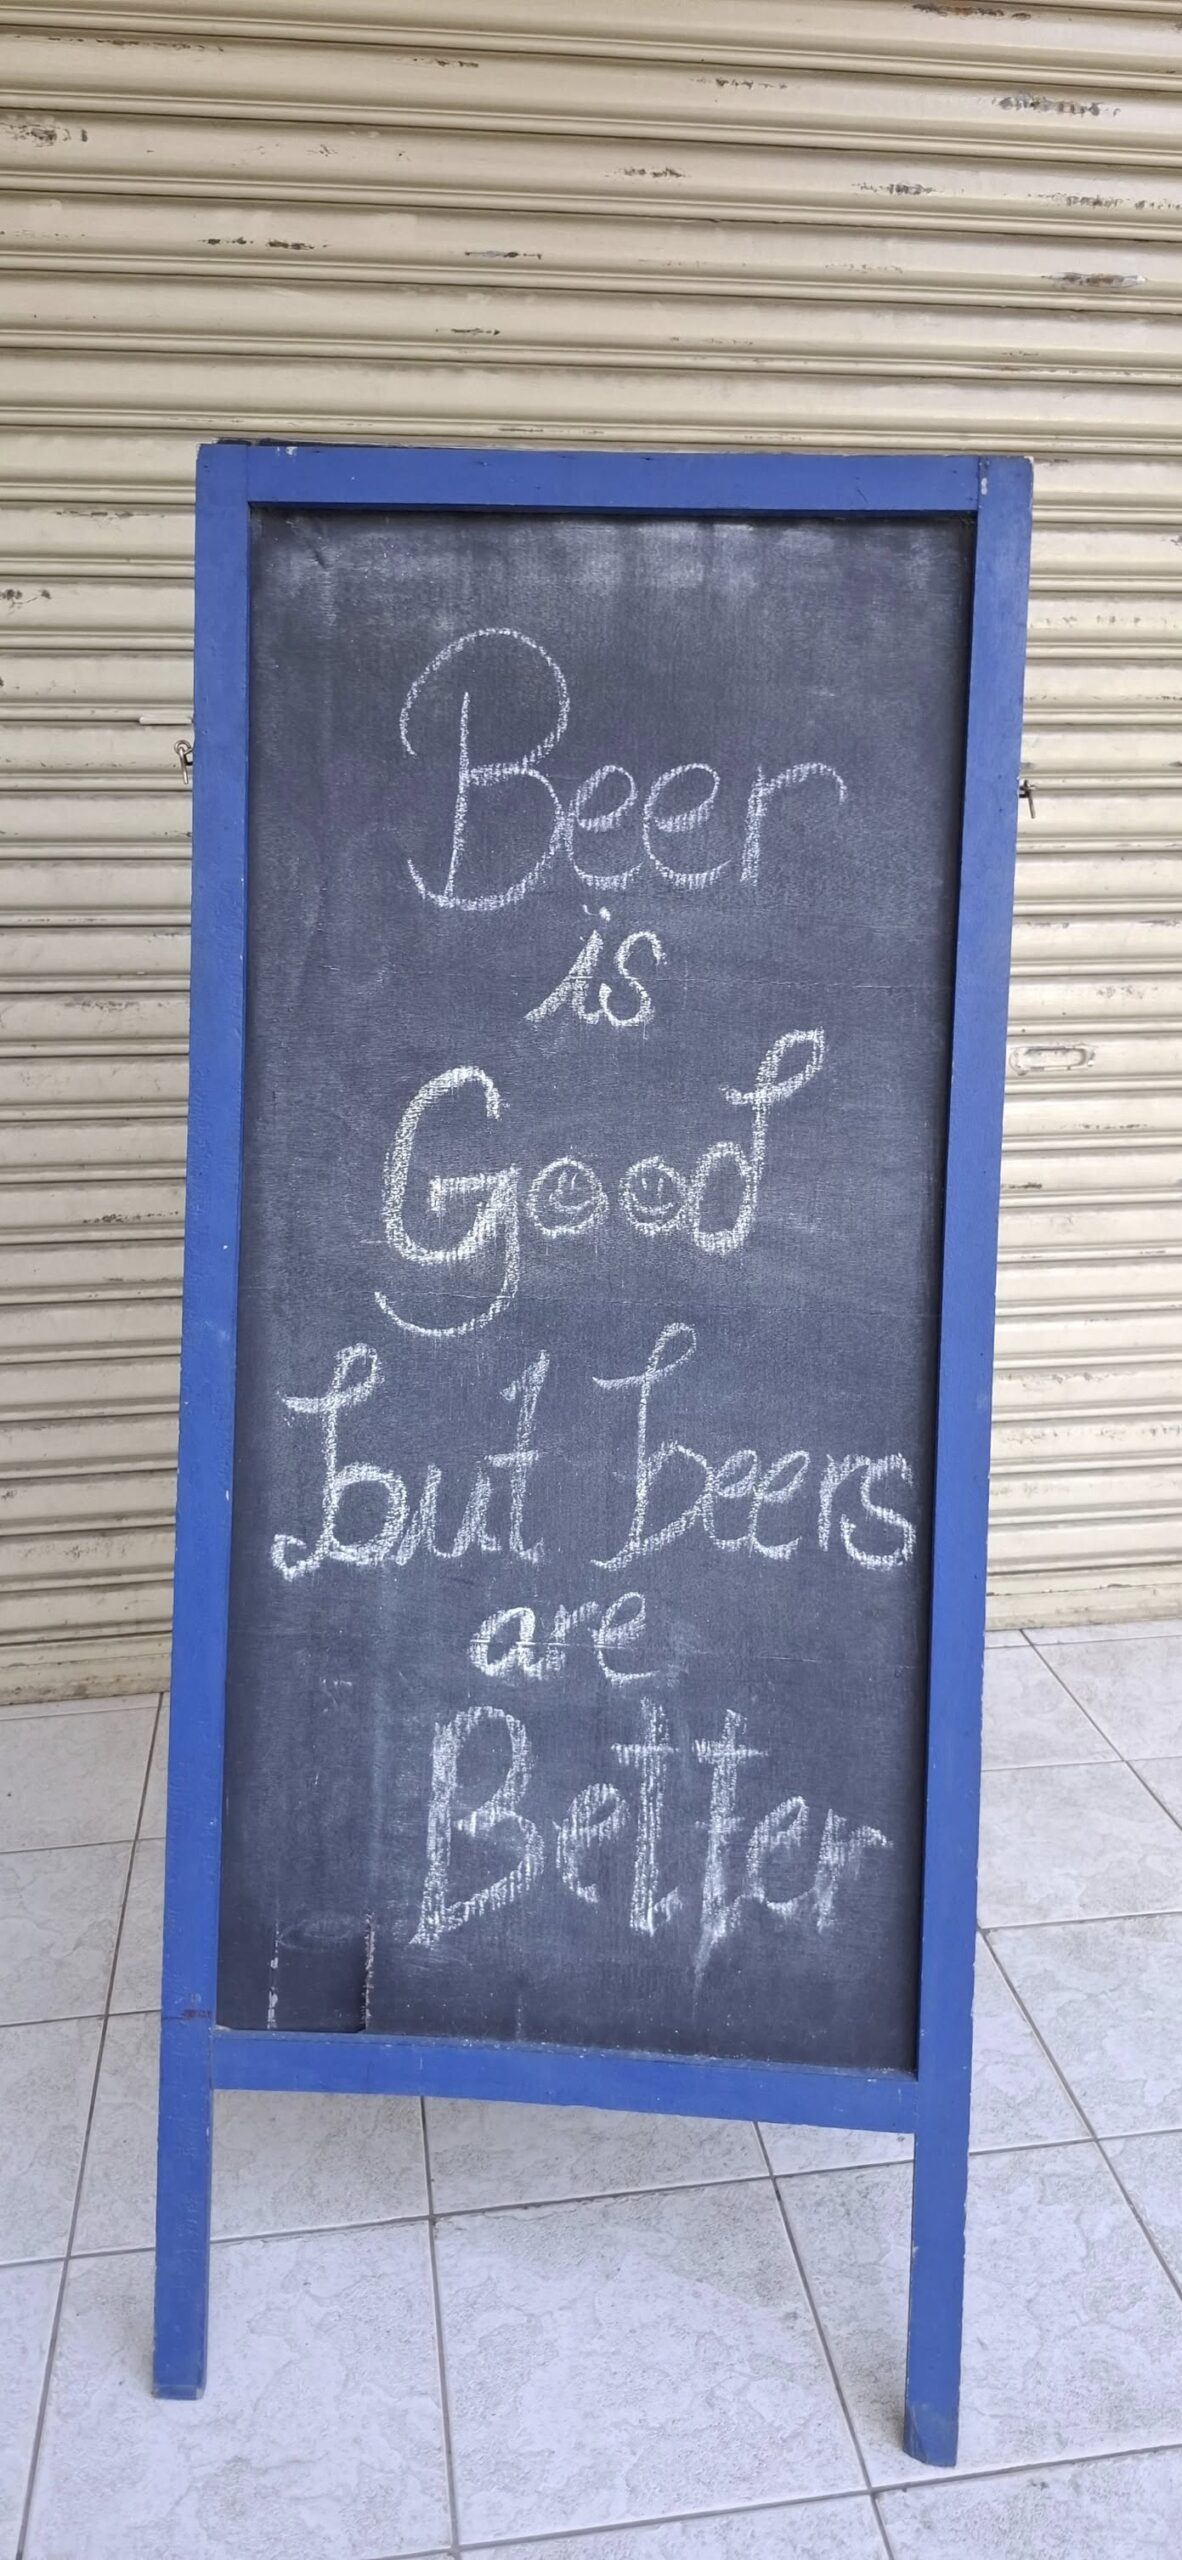 Beer
is
Good
but beers
are
Better